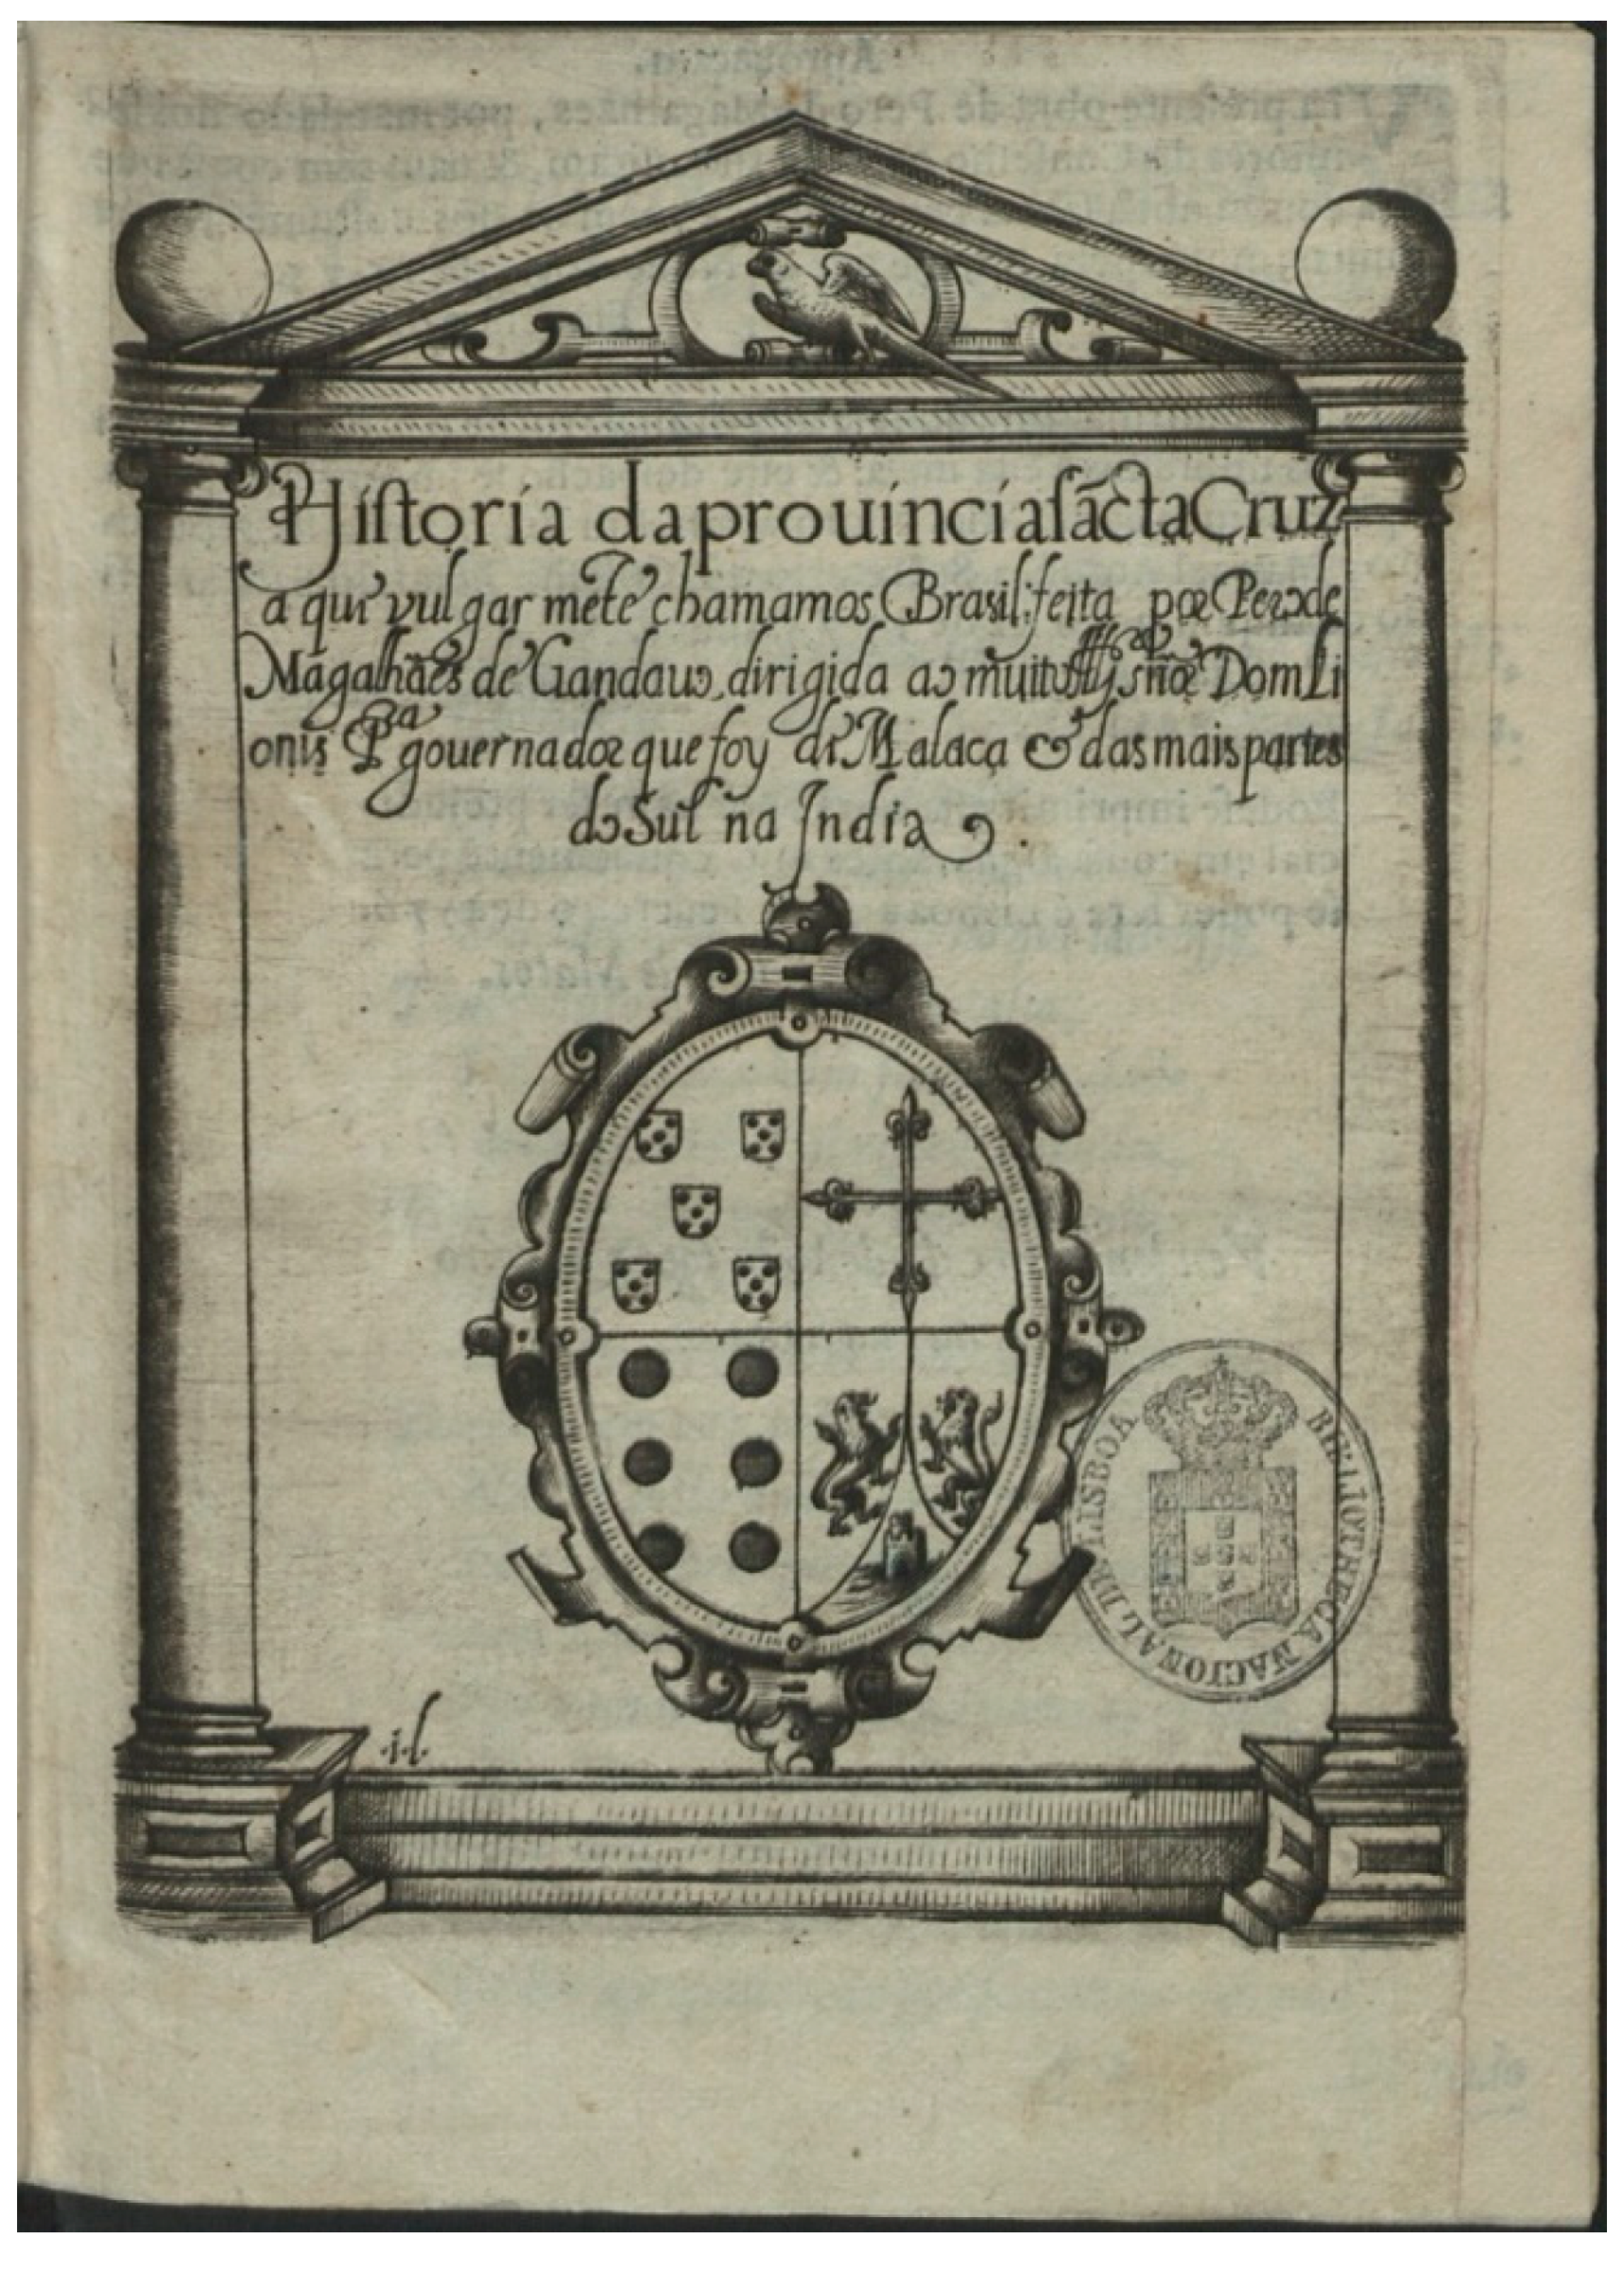 Hiſtoria da prouincia ſãcta Cruz
a que vulgar mẽte chamamos Brasil: feita por Pero de
Magalhães de Gandauo, dirigida ao muito Illsᵉ sñor Dom Li
onis Pᵃ gouernador que foy de Malaca & das mais partes
do Sul na India
.i.l.
BIBLIOTHECA NACIONAL DE LISBOA